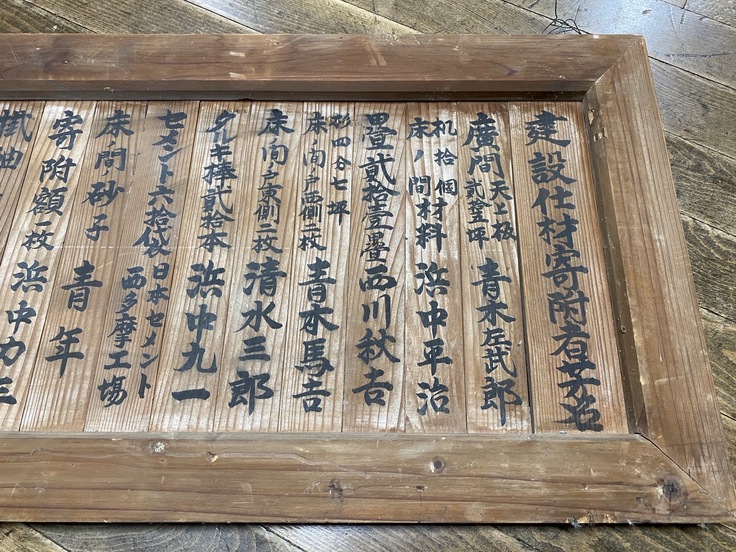 建設仕材寄附者芳名
廣間 天上板 弐釜坪 青木庄武郎
机拾個
床ノ間材料 浜中平治
畳貳拾壹疊 西川秋吉
杉四分七坪
床ノ間戸西側二枚 青木馬吉
床ノ間戸東側二枚 清水三郎
タルキ棒貳拾本 浜中九一
セメント六拾袋 日本セメント西多摩工場
床ノ間砂子 青年
寄附額一枚 浜中力三
掛軸